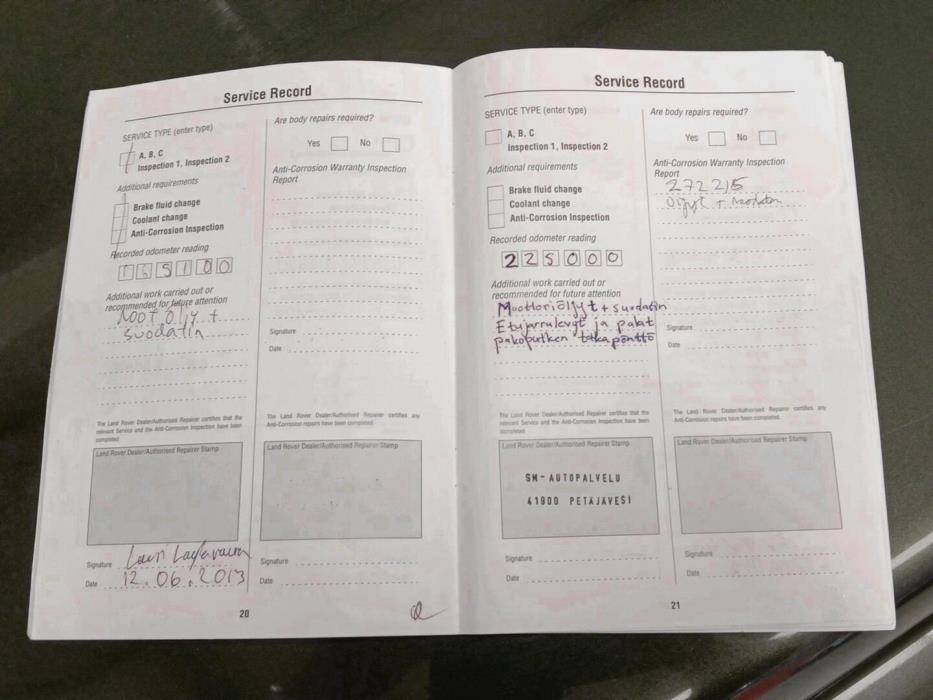 Service Record
SERVICE TYPE (enter type)
A, B, C
Inspection 1, Inspection 2
Additional requirements
Brake fluid change
Coolant change
Anti-Corrosion Inspection
Recorded odometer reading
165100
Additional work carried out or
recommended for future attention
Moot öljy +
suodatin
The Land Rover Dealer/Authorised Repairer certifies that the
relevant Service and the Anti-Corrosion Inspection have been
completed.
Land Rover Dealer/Authorised Repairer Stamp
Signature Lauri
Date 12.06.2013
Are body repairs required?
Yes No
Anti-Corrosion Warranty Inspection
Report
Signature
Date
The Land Rover Dealer/Authorised Repairer certifies any
Anti-Corrosion repairs have been completed.
Land Rover Dealer/Authorised Repairer Stamp
Signature
Date
20
Service Record
SERVICE TYPE (enter type)
A, B, C
Inspection 1, Inspection 2
Additional requirements
Brake fluid change
Coolant change
Anti-Corrosion Inspection
Recorded odometer reading
225000
Additional work carried out or
recommended for future attention
Moottoriöljyt + suodatin
Etujarrulevyt ja palat
pakoputken takapönttö
The Land Rover Dealer/Authorised Repairer certifies that the
relevant Service and the Anti-Corrosion Inspection have been
completed.
Land Rover Dealer/Authorised Repairer Stamp
SM-AUTOPALVELU
41900 PETÄJÄVESI
Signature
Date
Are body repairs required?
Yes No
Anti-Corrosion Warranty Inspection
Report
272215
öljyt +
Signature
Date
The Land Rover Dealer/Authorised Repairer certifies any
Anti-Corrosion repairs have been completed.
Land Rover Dealer/Authorised Repairer Stamp
Signature
Date
21